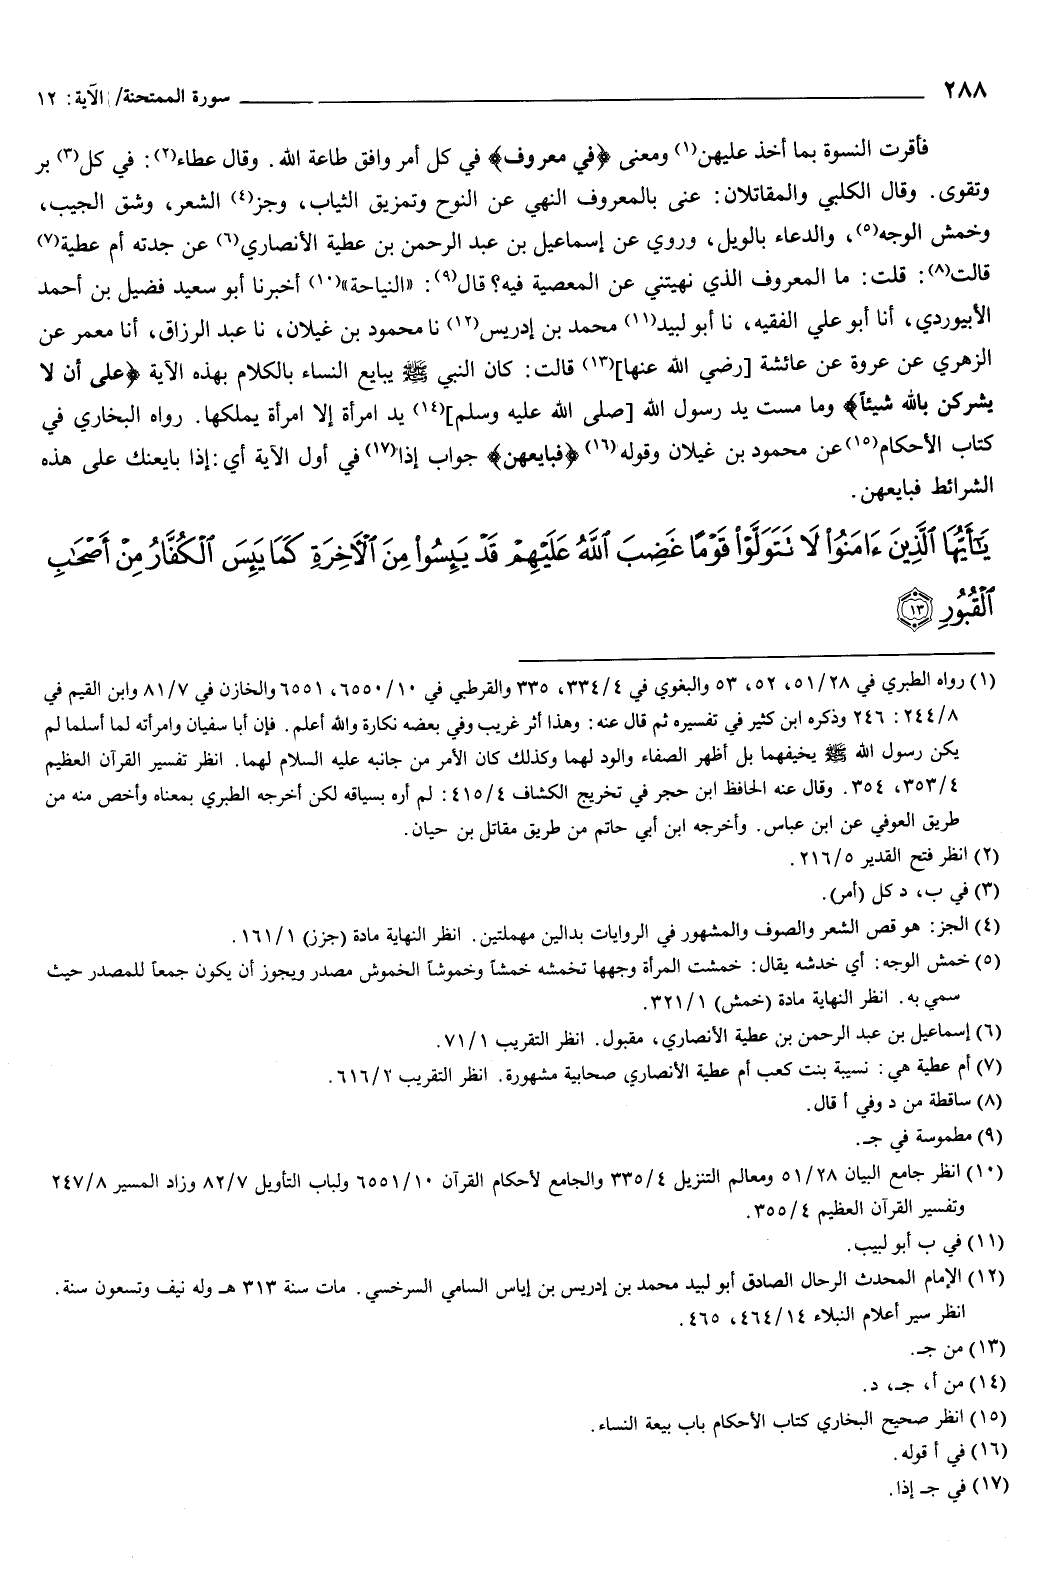 ٢٨٨ سورة الممتحنة/ الآية: ١٢
فأقرت النسوة بما أخذ عليهن(١) ومعنى ﴿في معروف﴾ في كل أمر وافق طاعة الله. وقال عطاء(٢): في كل(٣) بر
وتقوى. وقال الكلبي والمقاتلان: عنى بالمعروف النهي عن النوح وتمزيق الثياب، وجز(٤) الشعر، وشق الجيب،
وخمش الوجه(٥)، والدعاء بالويل، وروي عن إسماعيل بن عبد الرحمن بن عطية الأنصاري(٦) عن جدته أم عطية(٧)
قالت(٨): قلت: ما المعروف الذي نهيتني عن المعصية فيه؟ قال(٩): «النياحة»(١٠) أخبرنا أبو سعيد فضيل بن أحمد
الأبيوردي، أنا أبو علي الفقيه، نا أبو لبيد(١١) محمد بن إدريس(١٢) نا محمود بن غيلان، نا عبد الرزاق، أنا معمر عن
الزهري عن عروة عن عائشة [رضي الله عنها](١٣) قالت: كان النبي ﷺ يبايع النساء بالكلام بهذه الآية ﴿على أن لا
يشركن بالله شيئاً﴾ وما مست يد رسول الله [صلى الله عليه وسلم](١٤) يد امرأة إلا امرأة يملكها. رواه البخاري في
كتاب الأحكام(١٥) عن محمود بن غيلان وقوله(١٦) ﴿فبايعهن﴾ جواب إذا(١٧) في أول الآية أي: إذا بايعنك على هذه
الشرائط فبايعهن.
يَٰٓأَيُّهَا ٱلَّذِينَ ءَامَنُوا۟ لَا تَتَوَلَّوْا۟ قَوْمًا غَضِبَ ٱللَّهُ عَلَيْهِمْ قَدْ يَئِسُوا۟ مِنَ ٱلْءَاخِرَةِ كَمَا يَئِسَ ٱلْكُفَّارُ مِنْ أَصْحَٰبِ
ٱلْقُبُورِ ١٣
(١) رواه الطبري في ٥١/٢٨، ٥٢، ٥٣ والبغوي في ٣٣٤/٤، ٣٣٥ والقرطبي في ٦٥٥٠/١٠، ٦٥٥١ والخازن في ٨١/٧ وابن القيم في
٢٤٤/٨: ٢٤٦ وذكره ابن كثير في تفسيره ثم قال عنه: وهذا أثر غريب وفي بعضه نكارة والله أعلم. فإن أبا سفيان وامرأته لما أسلما لم
يكن رسول الله ﷺ يخيفهما بل أظهر الصفاء والود لهما وكذلك كان الأمر من جانبه عليه السلام لهما. انظر تفسير القرآن العظيم
٣٥٣/٤، ٣٥٤. وقال عنه الحافظ ابن حجر في تخريج الكشاف ٤١٥/٤: لم أره بسياقه لكن أخرجه الطبري بمعناه وأخص منه من
طريق العوفي عن ابن عباس. وأخرجه ابن أبي حاتم من طريق مقاتل بن حيان.
(٢) انظر فتح القدير ٢١٦/٥.
(٣) في ب، د كل (أمر).
(٤) الجز: هو قص الشعر والصوف والمشهور في الروايات بدالين مهملتين. انظر النهاية مادة (جزز) ١٦١/١.
(٥) خمش الوجه: أي خدشه يقال: خمشت المرأة وجهها تخمشه خمشاً وخموشاً الخموش مصدر ويجوز أن يكون جمعاً للمصدر حيث
سمي به. انظر النهاية مادة (خمش) ٣٢١/١.
(٦) إسماعيل بن عبد الرحمن بن عطية الأنصاري، مقبول. انظر التقريب ٧١/١.
(٧) أم عطية هي: نسيبة بنت كعب أم عطية الأنصاري صحابية مشهورة. انظر التقريب ٦١٦/٢.
(٨) ساقطة من د وفي أ قال.
(٩) مطموسة في جـ.
(١٠) انظر جامع البيان ٥١/٢٨ ومعالم التنزيل ٣٣٥/٤ والجامع لأحكام القرآن ٦٥٥١/١٠ ولباب التأويل ٨٢/٧ وزاد المسير ٢٤٧/٨
وتفسير القرآن العظيم ٣٥٥/٤.
(١١) في ب أبو لبيب.
(١٢) الإمام المحدث الرحال الصادق أبو لبيد محمد بن إدريس بن إياس السامي السرخسي. مات سنة ٣١٣ هـ وله نيف وتسعون سنة.
انظر سير أعلام النبلاء ٤٦٤/١٤، ٤٦٥.
(١٣) من جـ.
(١٤) من أ، جـ، د.
(١٥) انظر صحيح البخاري كتاب الأحكام باب بيعة النساء.
(١٦) في أ قوله.
(١٧) في جـ إذا.